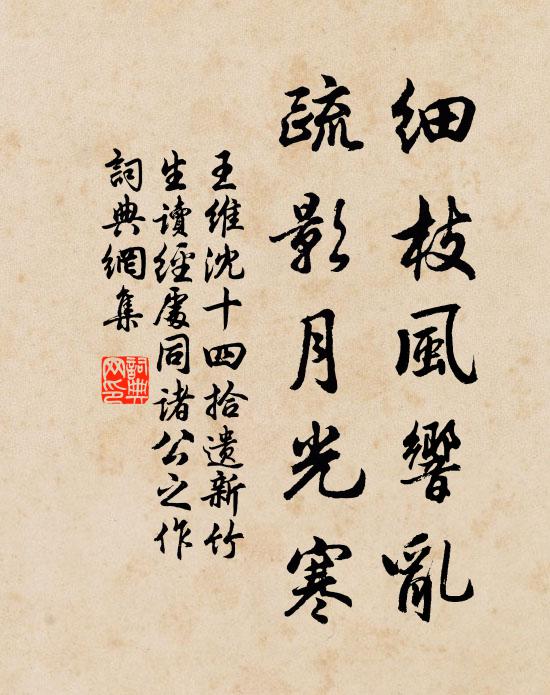 細枝風響亂
疏影月光寒
王維沈十四拾遺新竹
生讀經處同諸公之作
詞典網集
詞典
網印